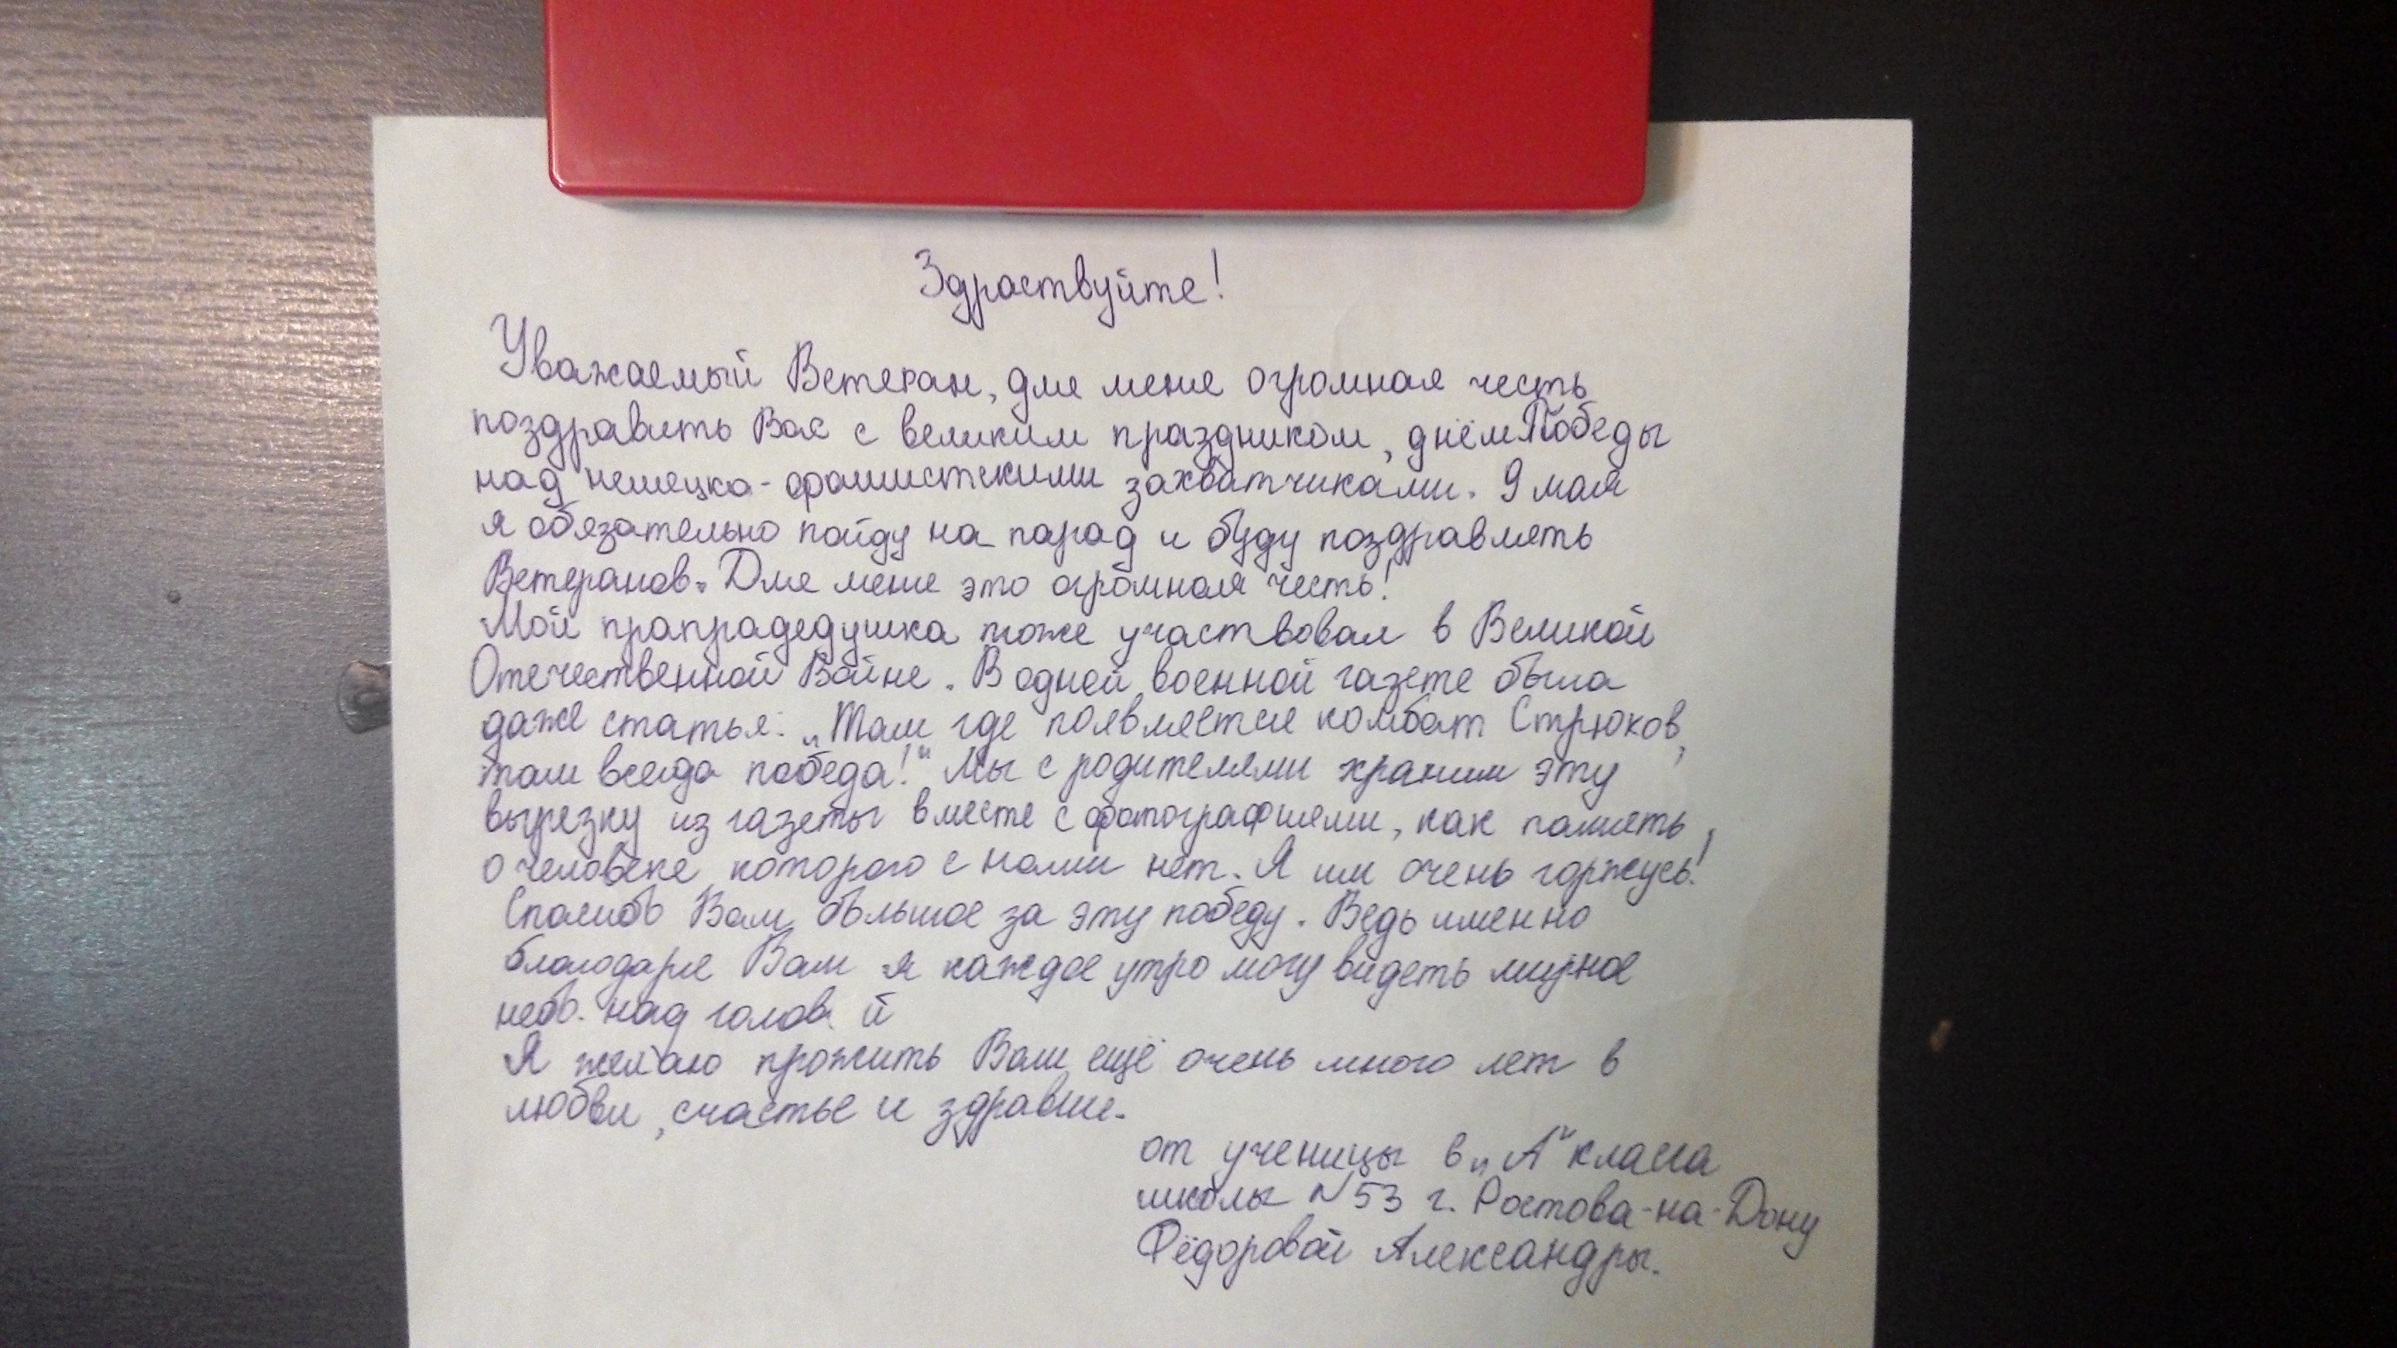 Здраствуйте!
Уважаемый Ветеран, для меня огромная честь
поздравить Вас с великим праздником, днём Победы
над немецко-фашистскими захватчиками. 9 мая
я обязательно пойду на парад и буду поздравлять
Ветеранов. Для меня это огромная честь!
Мой прапрадедушка тоже участвовал в Великой
Отечественной Войне. В одной военной газете была
даже статья: „Там где появляется комбат Стрюков,
там всегда победа!“ Мы с родителями храним эту
вырезку из газеты вместе с фотографиями, как память,
о человеке которого с нами нет. Я им очень горжусь!
Спасибо Вам большое за эту победу. Ведь именно
благодаря Вам я каждое утро могу видеть мирное
небо над голов й
Я желаю прожить Вам ещё очень много лет в
любви, счастье и здравие.
от ученицы 6 „А“ класса
школы N53 г. Ростова-на-Дону
Фёдоровой Александры.